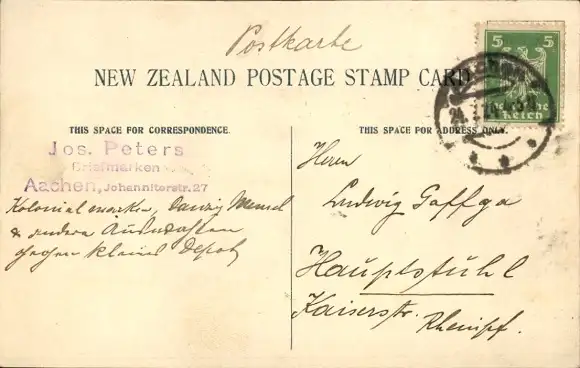 Postkarte
NEW ZEALAND POSTAGE STAMP CARD
5 5
Deutsche
Reich
THIS SPACE FOR CORRESPONDENCE.
THIS SPACE FOR ADDRESS ONLY.
Jos. Peters
Briefmarken
Aachen, Johanniterstr. 27
Kolonialmarken, Danzig Memel
& andere
gegen klein Depot
Herrn
Ludwig Gaffga
Hauptstuhl
Kaiserstr.
Rheinpf.